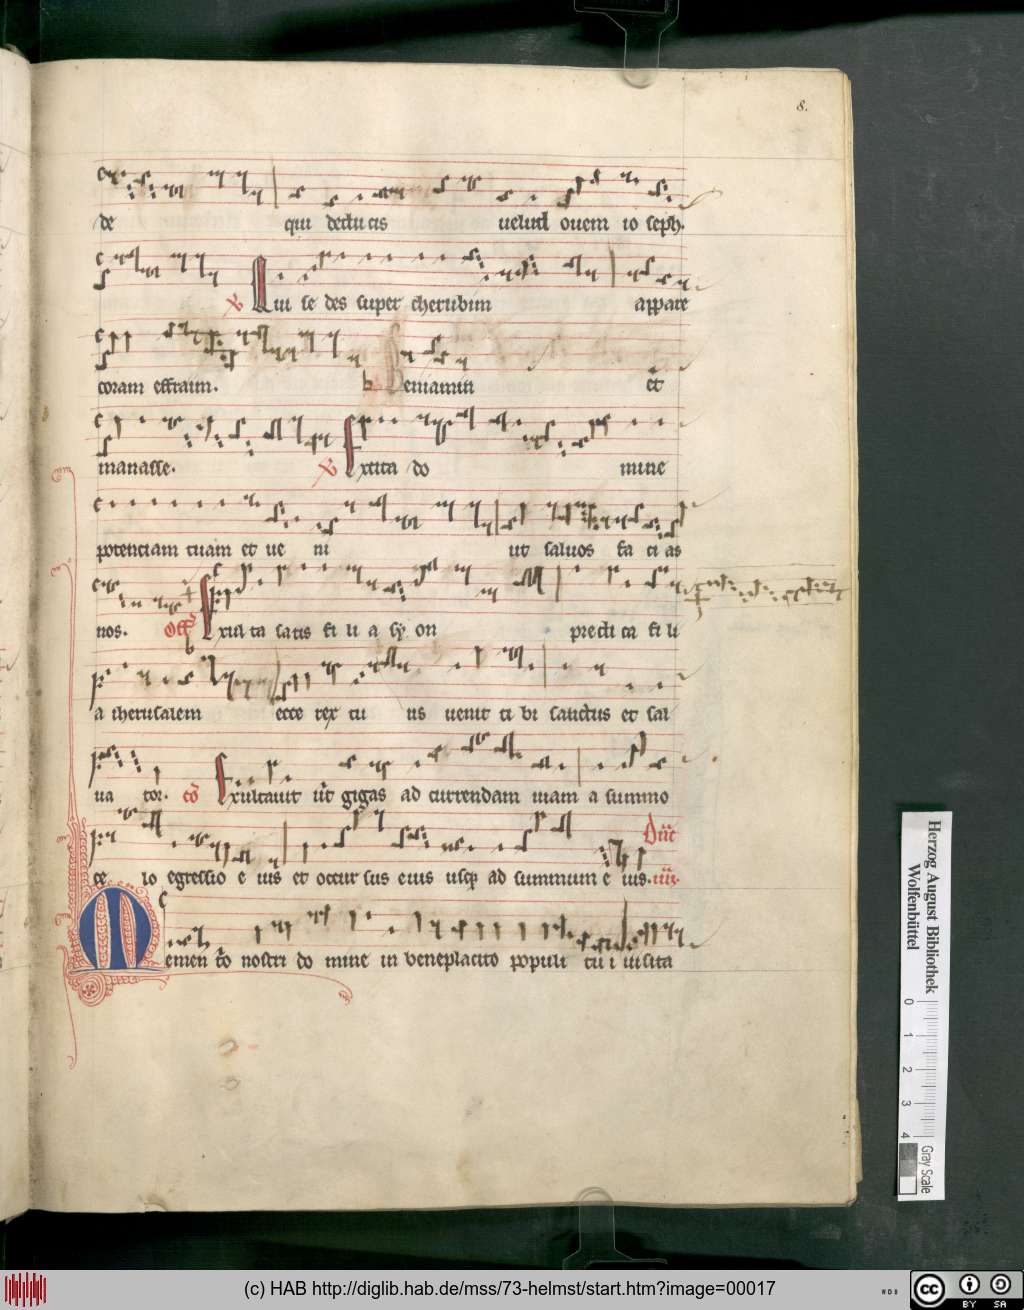 8.
de qui deducis uelud ouem io seph.
℣ Qui se des super cherubim appare
coram effraim. b Beniamin et
manasse. ℣ Excita do mine
potenciam tuam et ue ni ut saluos fa ci as
nos. Off̄ Exul ta satis fi li a sy on predi ca fi li
a iherusalem ecce rex tu us uenit ti bi sanctus et sal
ua tor. co̅ Exultauit ut gigas ad currendam uiam a summo
ce lo egressio e ius et occur sus eius usq; ad summum e ius. iiii.
Memen to nostri do mine in beneplacito populi tu i uisita
Herzog August Bibliothek
Wolfenbüttel
0 1 2 3 4
Gray Scale
(c) HAB http://diglib.hab.de/mss/73-helmst/start.htm?image=00017
WDB
cc BY SA